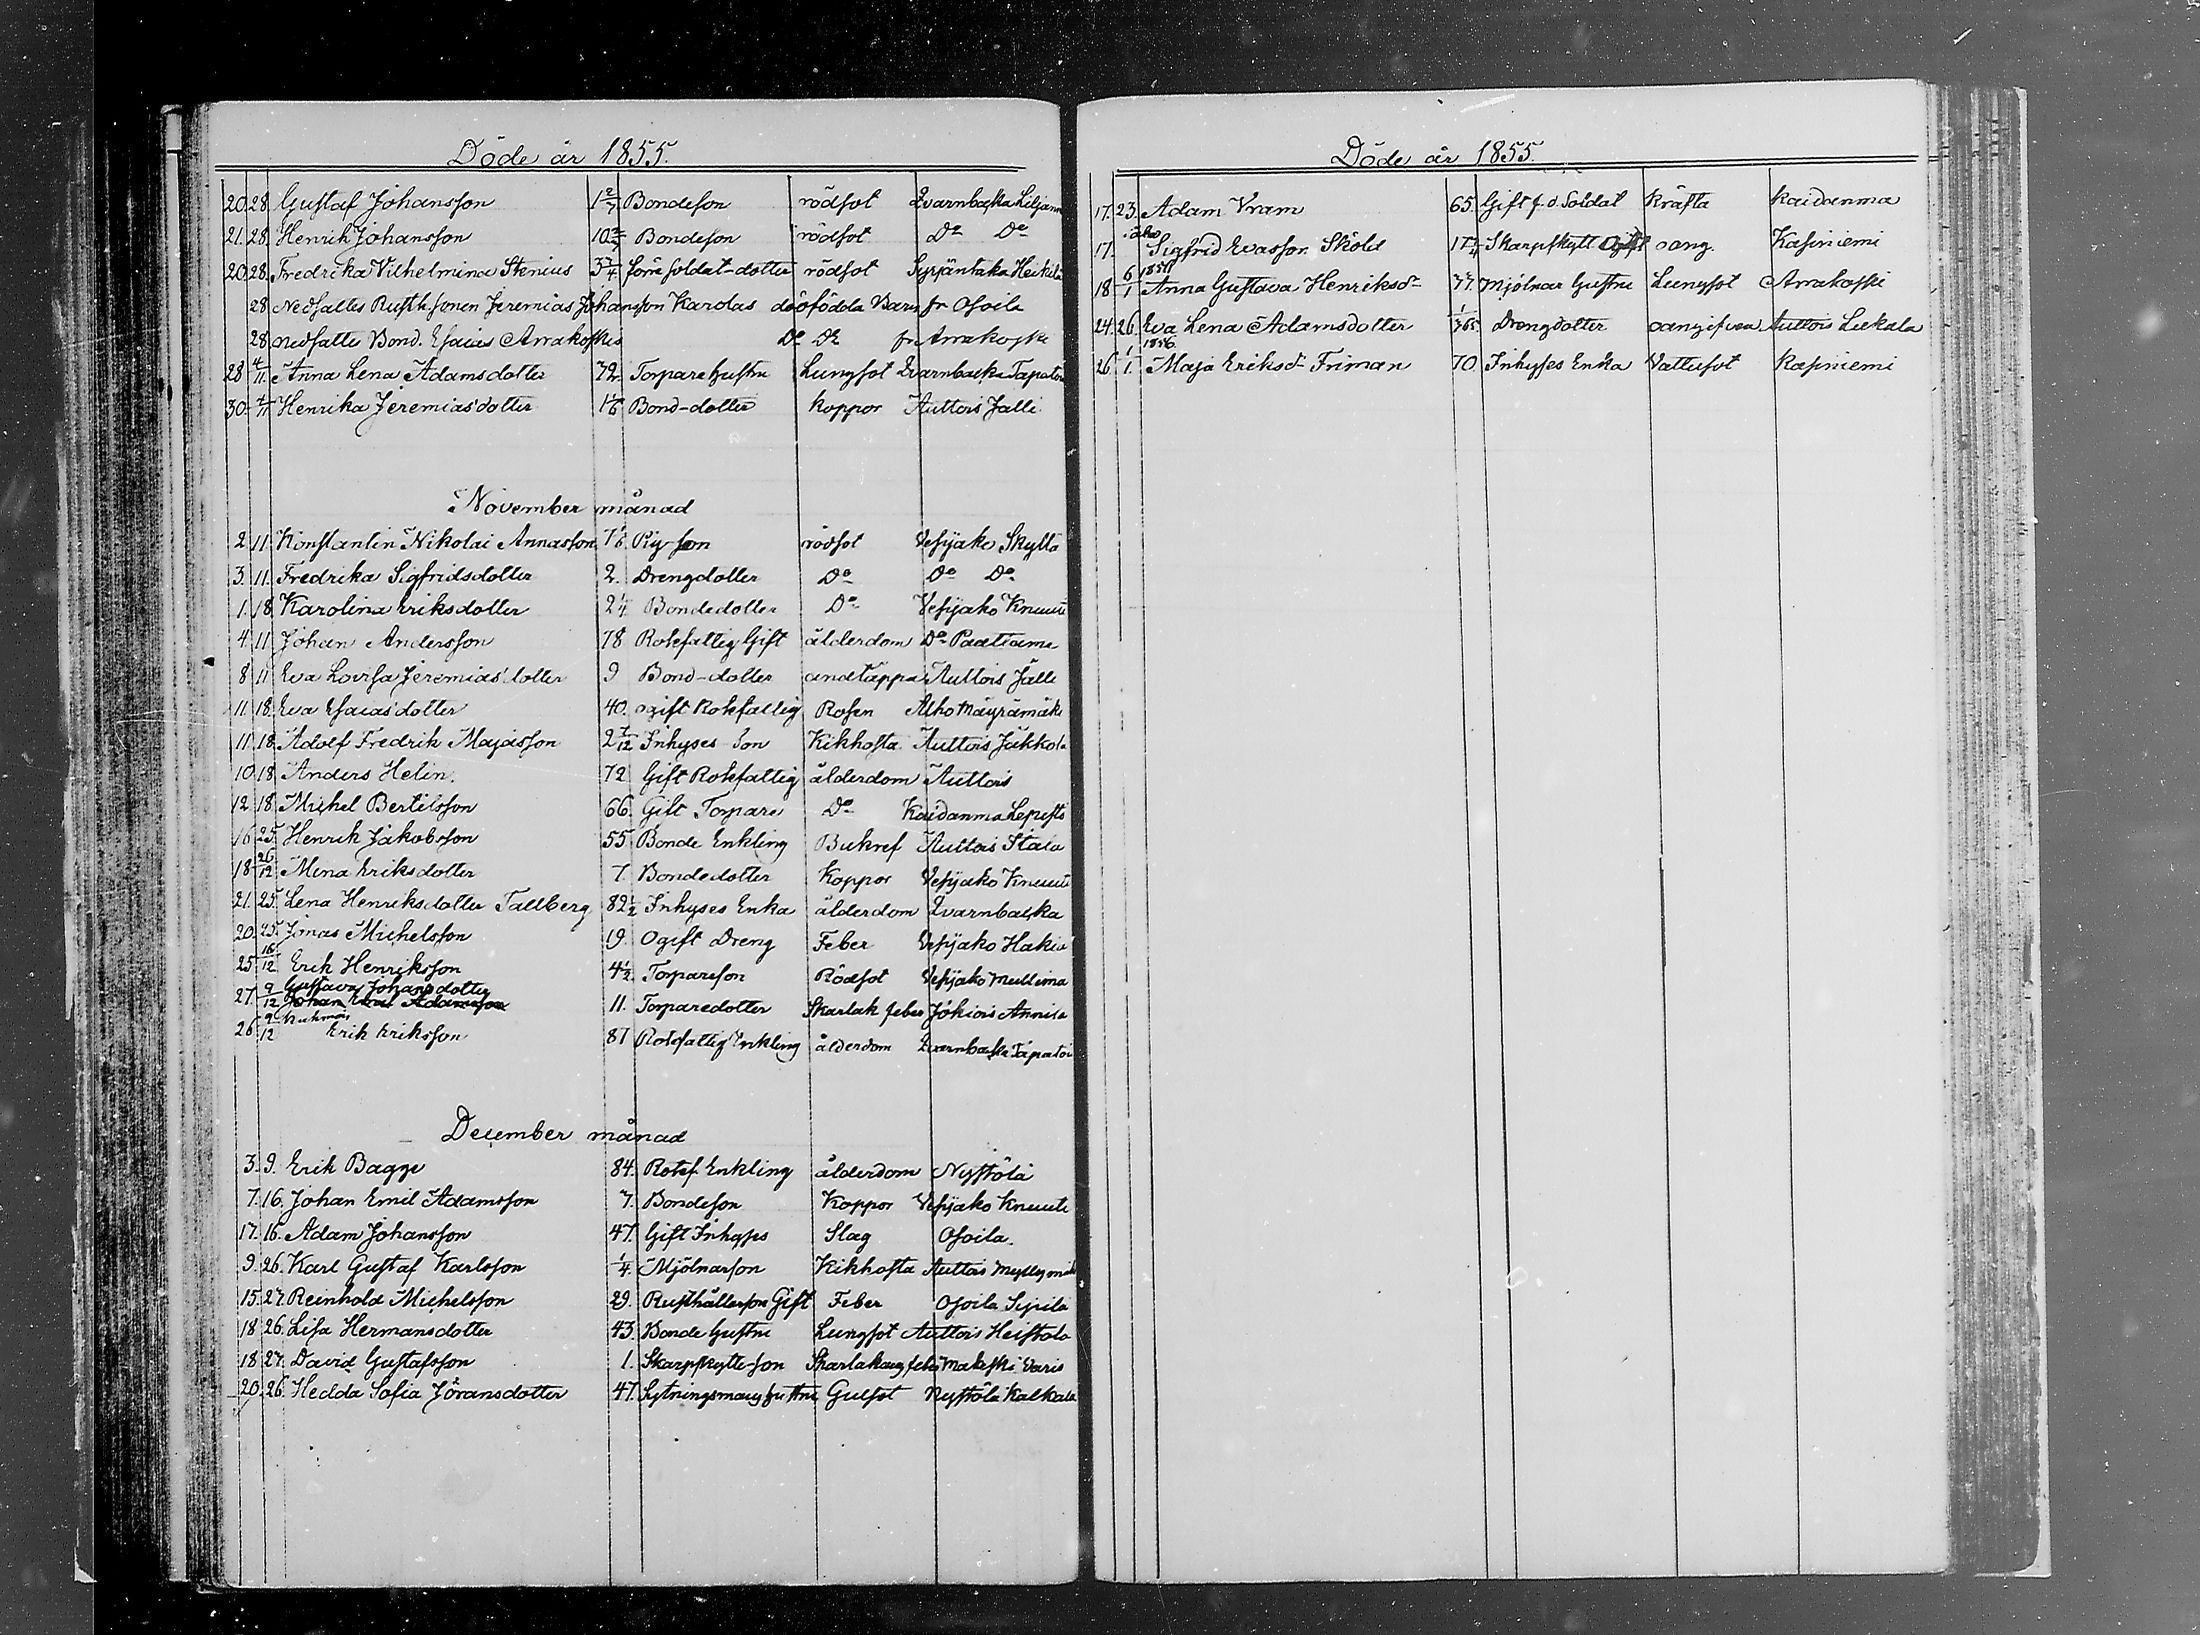 Döde år 1855.
20. 28. Gustaf Johansson 1 2/7 Bondeson rödsot Qvarnbacka Liljam
21. 28. Henrik Johansson 10 Bondeson rödsot Do Do
20. 28. Fredrika Vilhelmina Stenius 3 3/4 förre soldat-dotter rödsot Syrjäntaka Heikilä
28 Nedsattes Rusth. sonen Jeremias Johansson Karolas dödfödda Barn fr Osoila
28. nedsattes Bond. Esaias Arrakoskis Do Do fr Arrakoski
28 4/11 Anna Lena Adamsdotter 72. Torpare hustru Lungsot Qvarnbacka Tapatoi
30. 4/11 Henrika Jeremiasdotter 1 1/6 Bond-dotter Koppor Auttois Jalli
November månad
2 11. Konstantin Nikolai Annasson 7 1/6 Pig-son rödsot Vesijako Skyttä
3. 11. Fredrika Sigfridsdotter 2. Drengdotter Do Do Do
1. 18. Karolina Eriksdotter 2 1/4 Bondedotter Do Vesijako Knuuti
4 11 Johan Andersson 78 Rotefattig Gift ålderdom Do Paattama
8 11 Eva Lovisa Jeremias dotter 9 Bond-dotter andtäppa Auttois Jalli
11. 18. Eva Esaias dotter 40. ogift Rotefattig Rosen Alho Mäyrämäki
11 18. Adolf Fredrik Majasson 2 7/12 Inhyses son Kikhosta Auttois Jäkkölä
10 18. Anders Helin. 72 Gift Rotefattig ålderdom Auttois
12 18. Michel Bertilsson 66. Gift Torpare Do Kaidanma Lepistö
16 25. Henrik Jakobsson 55 Bonde Enkling Bukref Auttois Stala
18 26/12 Mina Eriksdotter 7. Bondedotter Koppor Vesijako Knuuti
21. 25. Lena Henriksdotter Tallberg 82 1/2 Inhyses Enka ålderdom Qvarnbacka
20. 25. Jonas Michelsson 19. Ogift Dreng Feber Vesijako Hakia
25 16/12 Erik Henriksson 4 1/2 Torpareson Rödsot Vesijako Mullima
27. 9/12 Gustava Johansdotter 11. Torparedotter Skarlak feber Jokiois Annila
Johan Emil Adamsson
26. 9/12 Kuhmois Erik Eriksson 87 Rotefattig Enkling ålderdom Qvarnbacka Tapatoi
December månad
3. 9. Erik Bagge 84. Rotef. Enkling ålderdom Nystölä
7. 16. Johan Emil Adamsson 7. Bondeson Koppor Vesijako Knuuti
17. 16. Adam Johansson 47. Gift Inhyses Slag Osoila.
9. 26. Karl Gustaf Karlsson 1/4. Mjölnarson Kikhosta Auttois Myllymäki
15. 27. Reinhold Michelsson 29. Rusthållarson Gift Feber Osoila Sipilä
18 26. Lisa Hermansdotter 43. Bonde hustru Lungsot Auttois Heistola
18 27. David Gustafsson 1. Skarpskytte-son Skarlakans feber Maakeski Varis
20. 26. Hedda Sofia Jöransdotter 47. Sytningsmans hustru Gulsot Nystölä Kalkala
Döde år 1855.
17. 23. Adam Vram 65. Gift f.d. Soldat Kräfta Kaidanma
17. i åbo Sigfrid Evasson Sköld 17 3/4 Skarpskytt Ogift oang. Kasiniemi
18 6/1 1856 Anna Gustava Henriksdr 77. Mjölnar hustru Lungsot Arrakoski
24. 26. Eva Lena Adamsdotter 1/365 Drengdotter oangifven Auttois Leekala
26. 1/1 1856 Maja Eriksdr Friman 70 Inhyses Enka Vattusot Kasiniemi